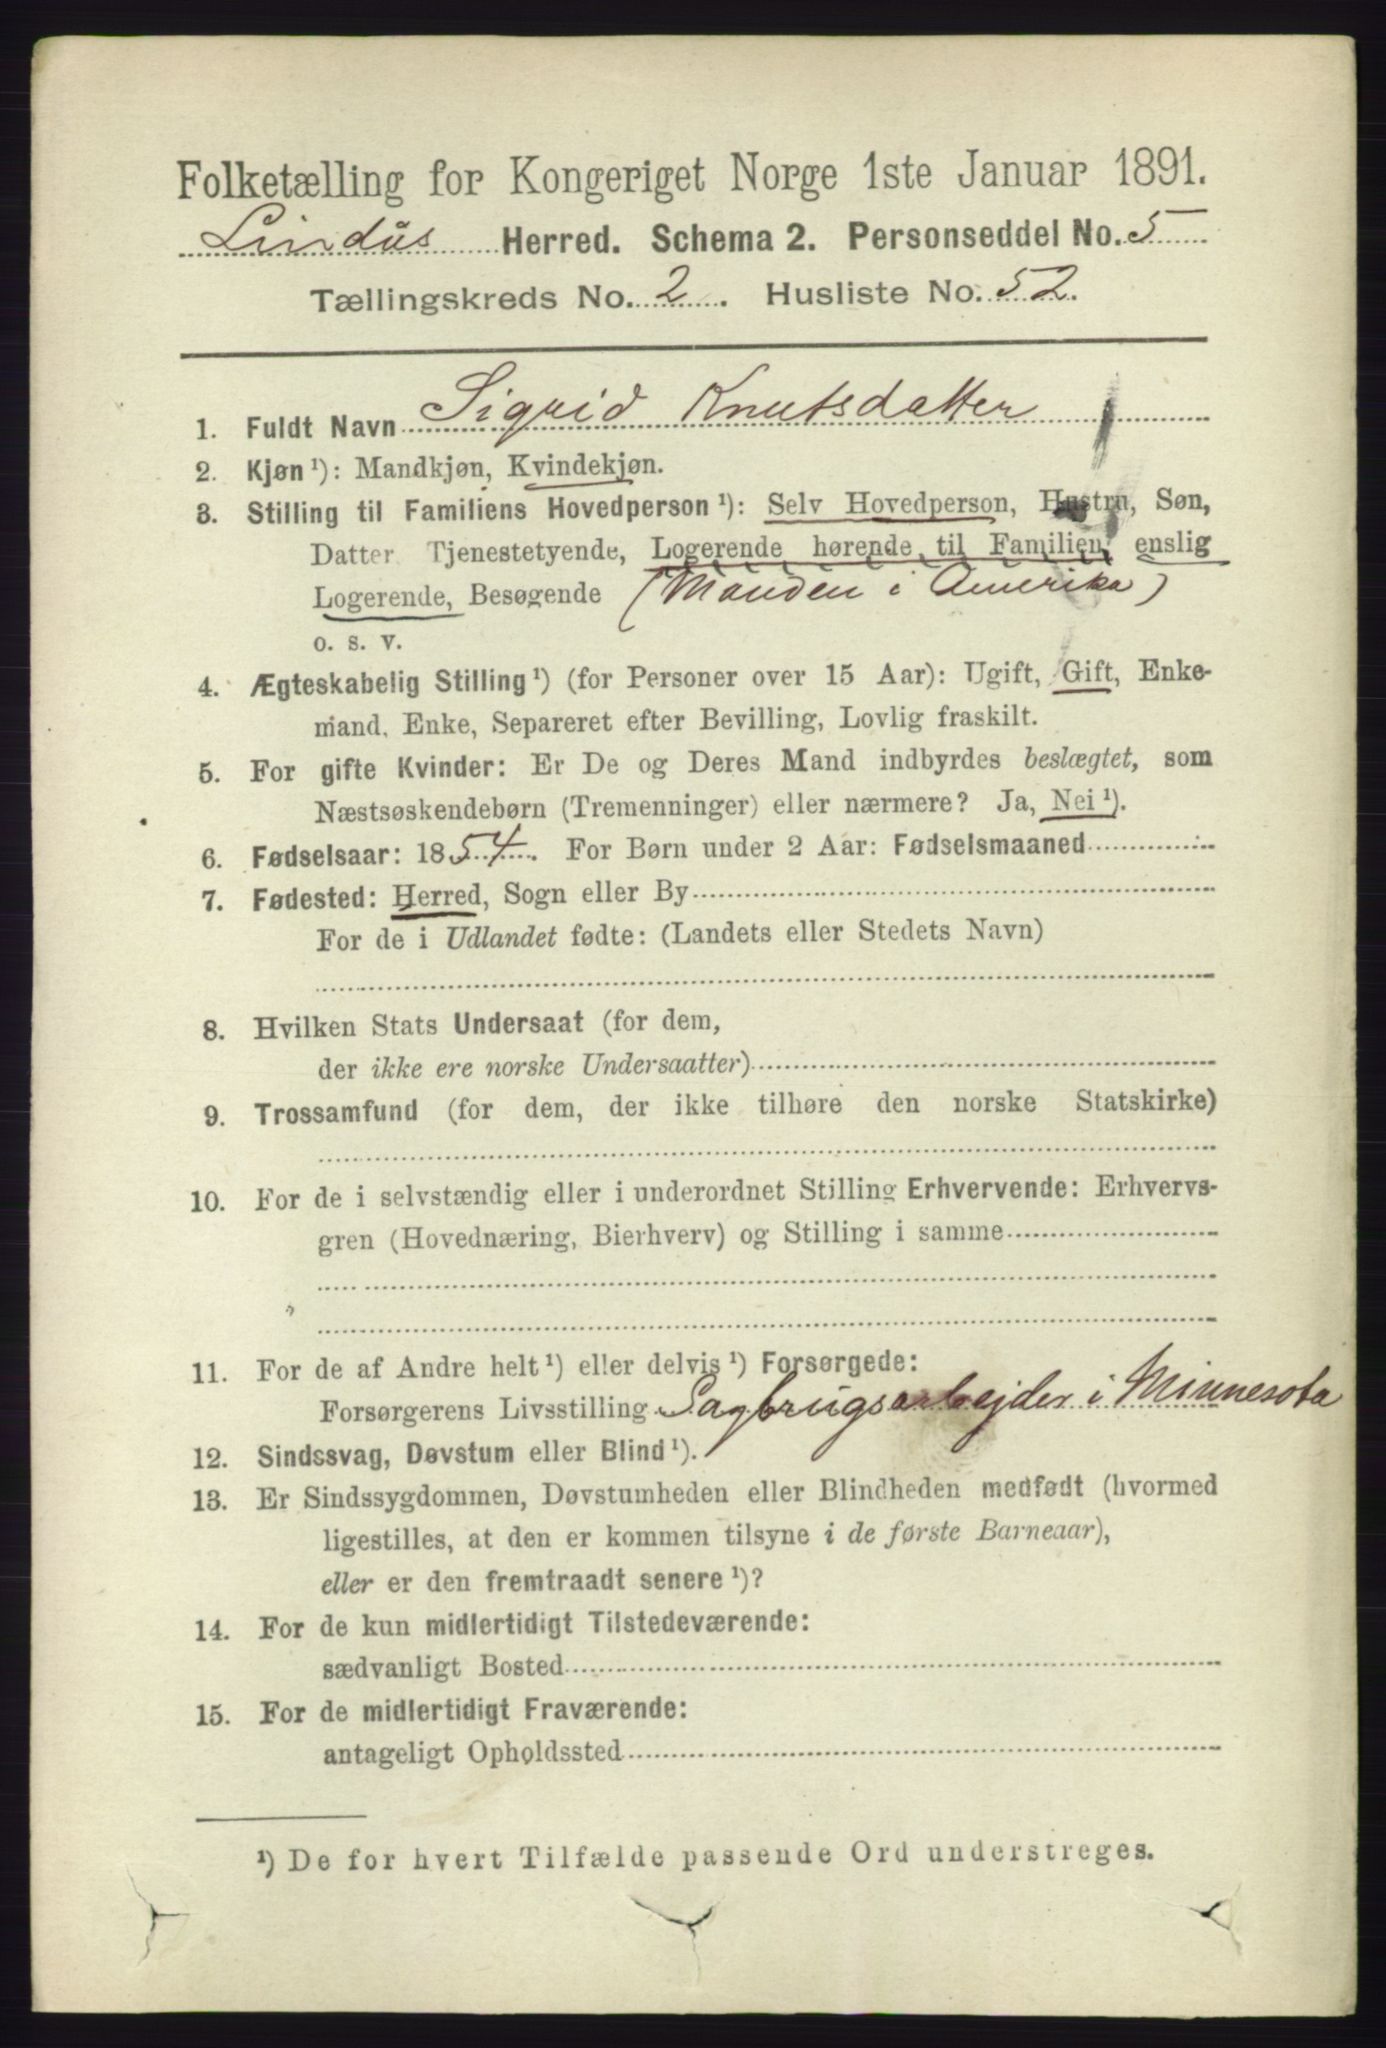 Folketælling for Kongeriget Norge 1ste Januar 1891.
Lindås Herred. Schema 2. Personseddel No. 5
Tællingskreds No. 2. Husliste No. 52.
1. Fuldt Navn Sigrid Knutsdatter
2. Kjøn ¹): Mandkjøn, Kvindekjøn.
3. Stilling til Familiens Hovedperson ¹): Selv Hovedperson, Hustru, Søn,
Datter, Tjenestetyende, Logerende hørende til Familien, enslig
Logerende, Besøgende (Manden i Amerika)
o. s. v.
4. Ægteskabelig Stilling ¹) (for Personer over 15 Aar): Ugift, Gift, Enke-
mand, Enke, Separeret efter Bevilling, Lovlig fraskilt.
5. For gifte Kvinder: Er De og Deres Mand indbyrdes beslægtet, som
Næstsøskendebørn (Tremenninger) eller nærmere? Ja, Nei ¹).
6. Fødselsaar: 1854. For Børn under 2 Aar: Fødselsmaaned
7. Fødested: Herred, Sogn eller By
For de i Udlandet fødte: (Landets eller Stedets Navn)
8. Hvilken Stats Undersaat (for dem,
der ikke ere norske Undersaatter)
9. Trossamfund (for dem, der ikke tilhøre den norske Statskirke)
10. For de i selvstændig eller i underordnet Stilling Erhvervende: Erhvervs-
gren (Hovednæring, Bierhverv) og Stilling i samme
11. For de af Andre helt ¹) eller delvis ¹) Forsørgede:
Forsørgerens Livsstilling Sagbrugsarbejder i Minnesota
12. Sindssvag, Døvstum eller Blind ¹).
13. Er Sindssygdommen, Døvstumheden eller Blindheden medfødt (hvormed
ligestilles, at den er kommen tilsyne i de første Barneaar),
eller er den fremtraadt senere ¹)?
14. For de kun midlertidigt Tilstedeværende:
sædvanligt Bosted
15. For de midlertidigt Fraværende:
antageligt Opholdssted
¹) De for hvert Tilfælde passende Ord understreges.